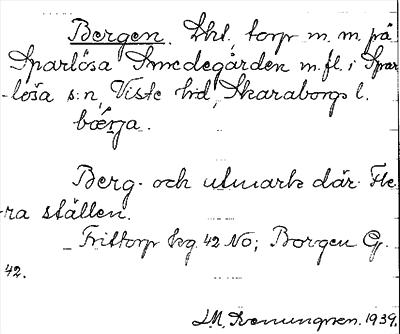 Bergen. Skl, torp m.m. på
Sparlösa Smedegården m.fl. i Spar-
lösa s:n, Viste hd, Skaraborgs l.
bærja.
Berg- och utmark där. Fle-
ra ställen.
Frittorp kg. 42 No; Borgen G.
42.
1939.